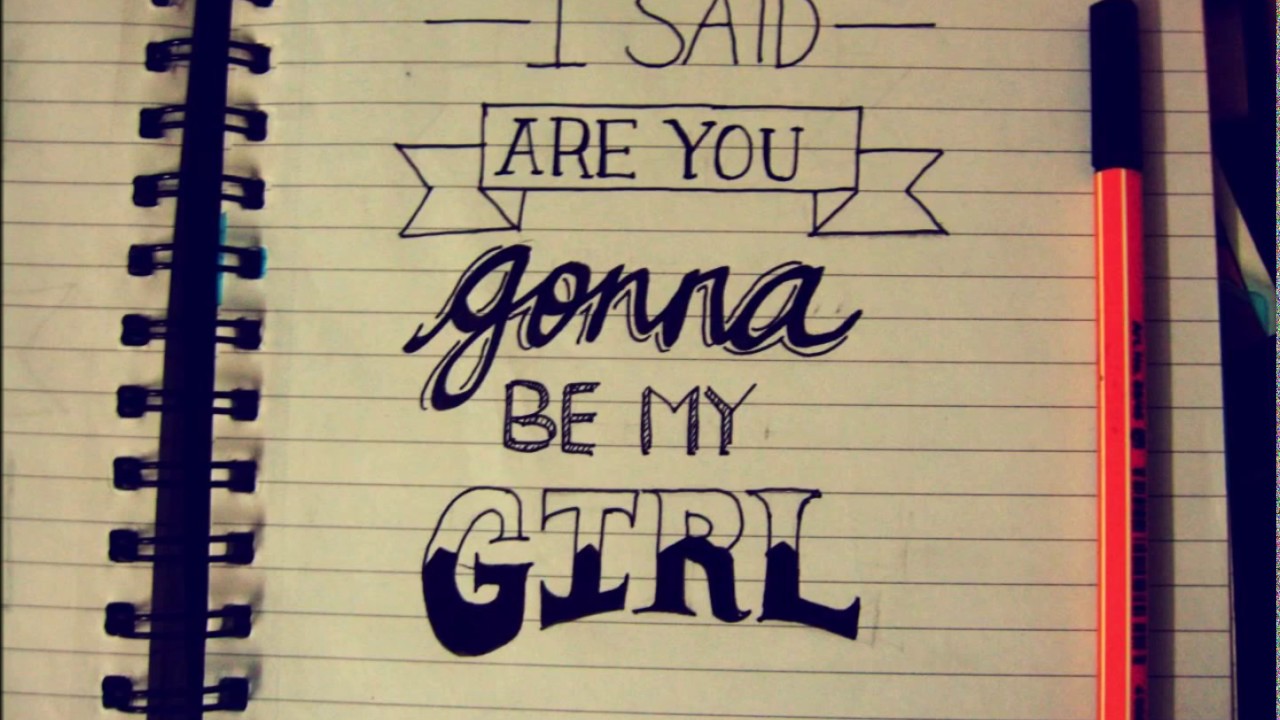 I SAID
ARE YOU
gonna
BE MY
GIRL